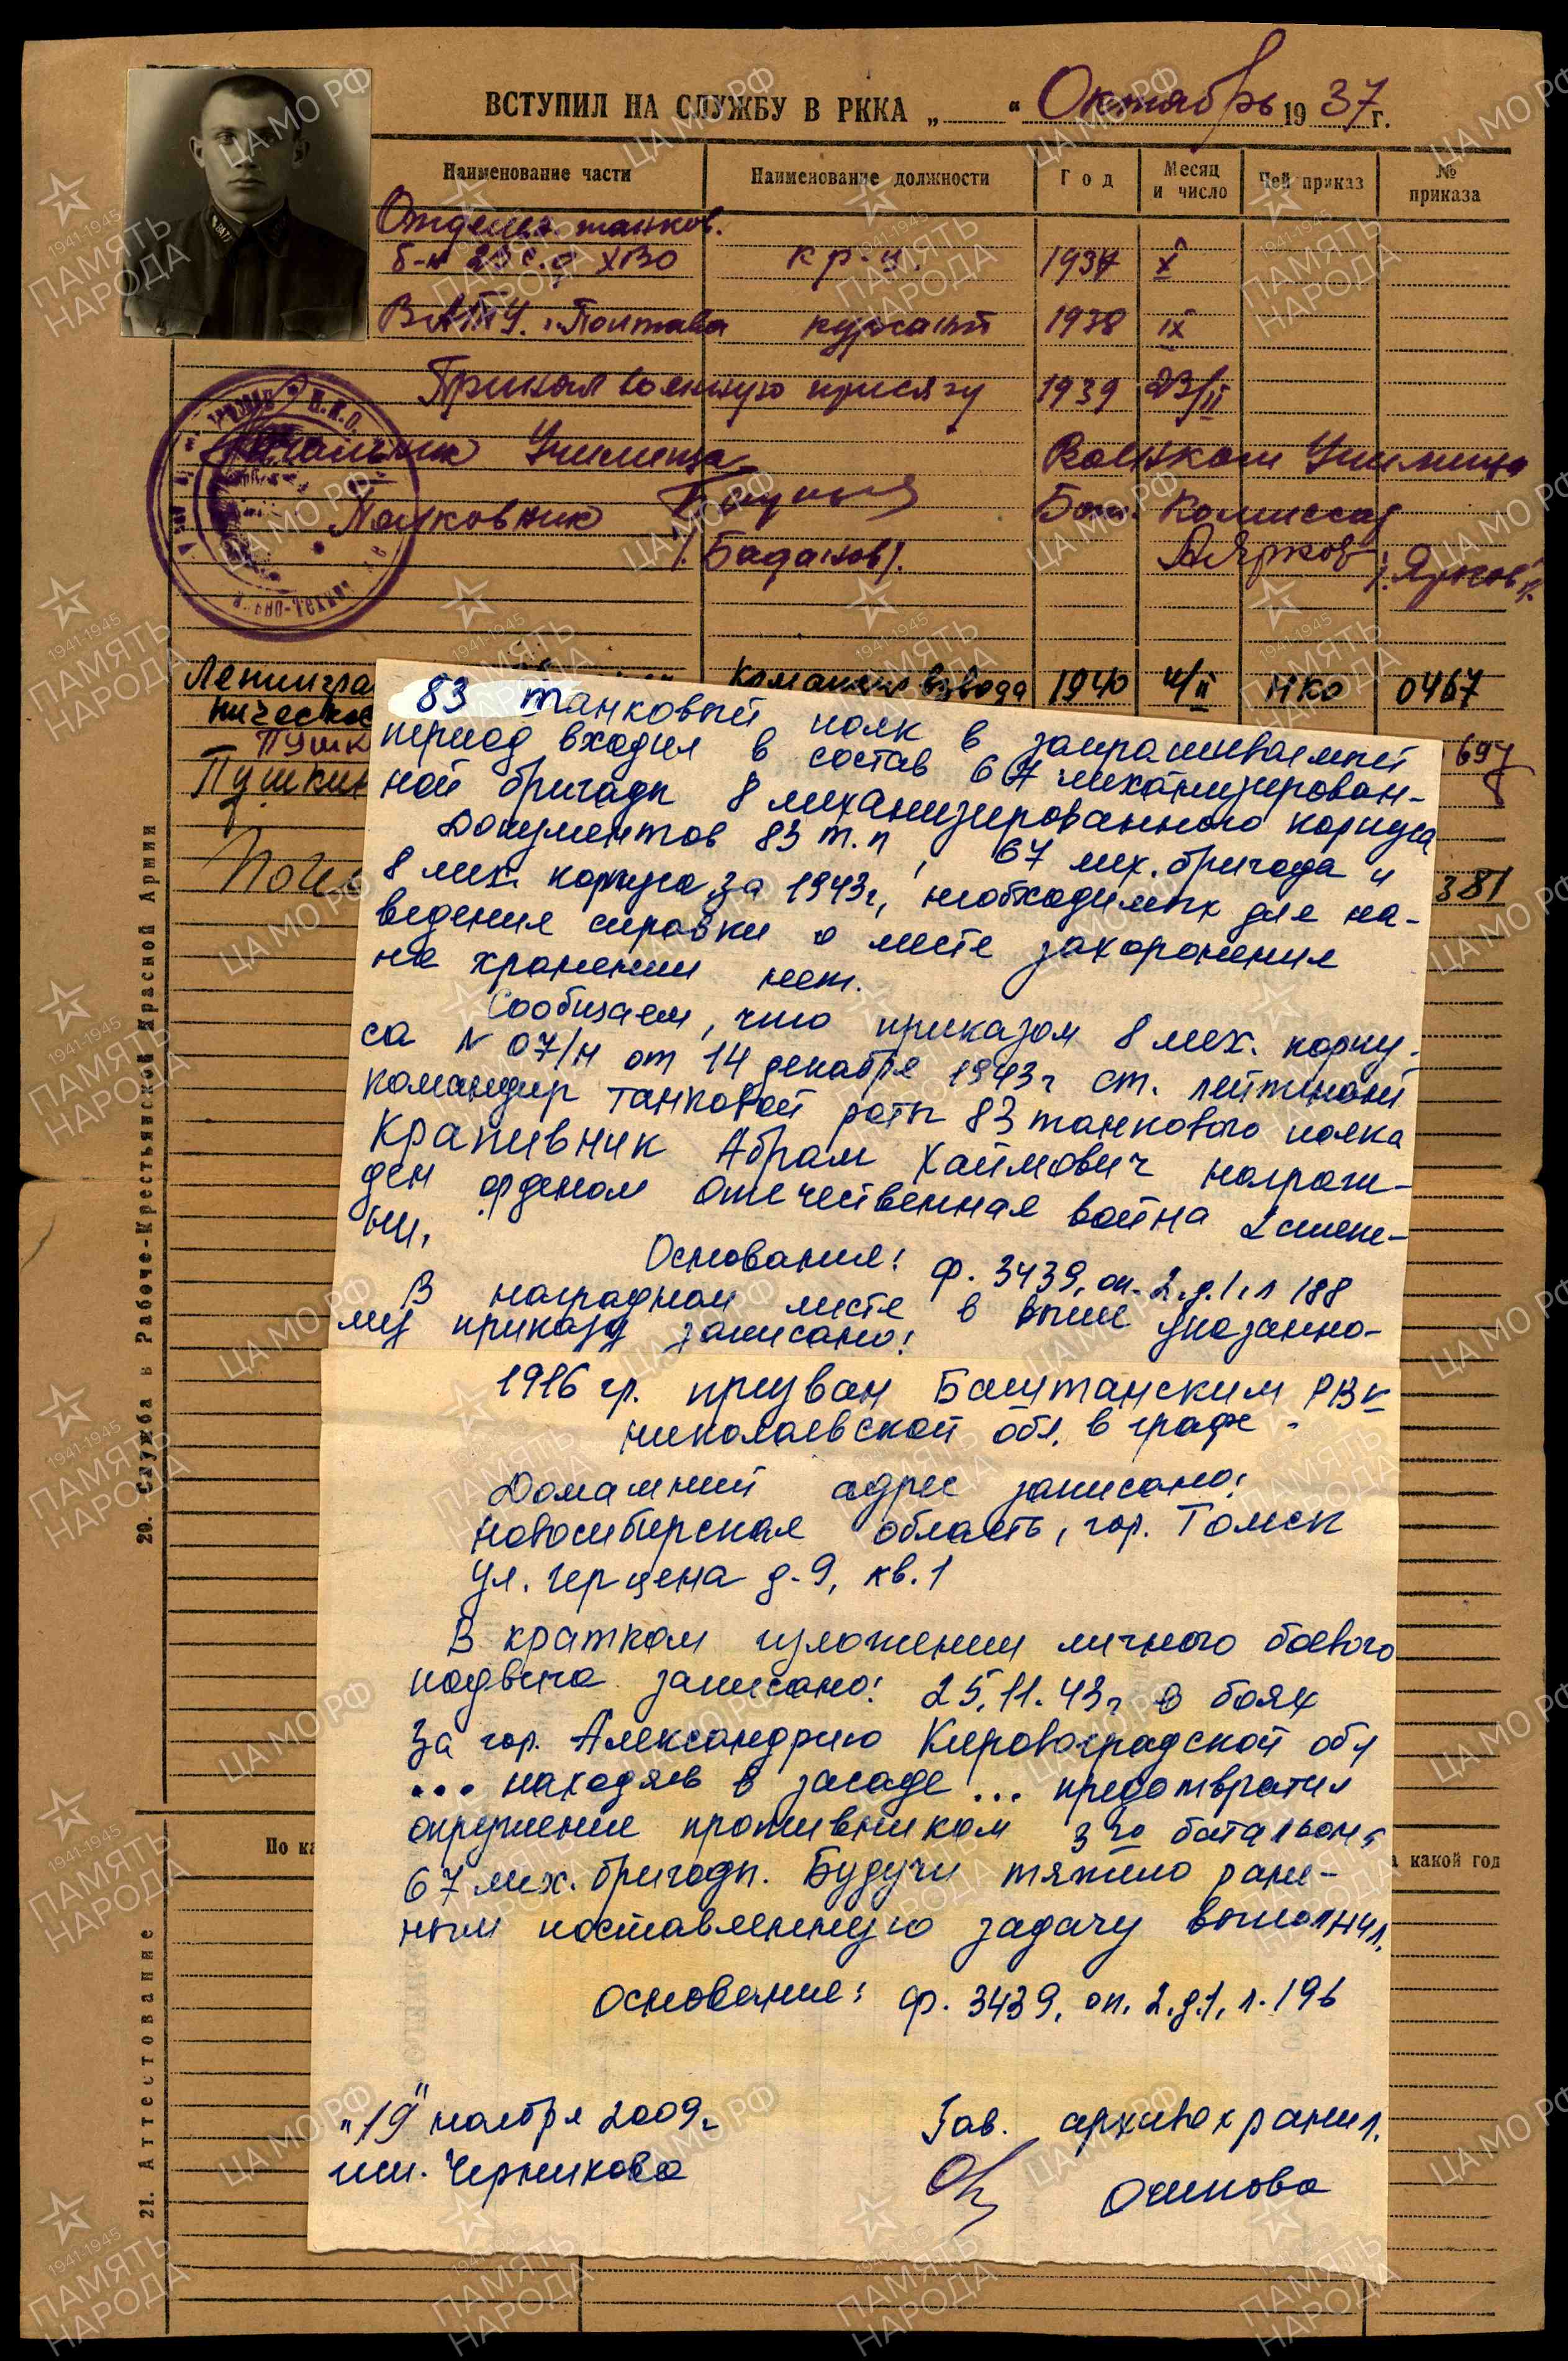 ВСТУПИЛ НА СЛУЖБУ В РККА „ “ Октябрь 1937 г.
Наименование части Наименование должности Год Месяц и число Чей приказ № приказа
Отдельн. танков.
б-н с.д ХВО кр-ц. 1937 X
ВАТУ. г. Полтава курсант 1938 IX
Принял военную присягу 1939 23/II
Начальник Училища Военком Училища
Полковник Бат. Комиссар
/Баданов/. Ярков /Ярков/.
Ленингра Командир взвода 1940 4/II НКО 0467
ническое
Пушк 697
Пушкин
Поги 381
83 танковый полк в запрашиваемый
период входил в состав 67 механизирован-
ной бригады 8 механизированного корпуса
Документов 83 т.п, 67 мех. бригада и
8 мех. корпуса за 1943г, необходимых для на-
ведения справки о месте захоронения
на хранении нет.
Сообщаем, что приказом 8 мех. корпу-
са № 07/н от 14 декабря 1943г ст. лейтенант
командир танковой роты 83 танкового полка
Крапивник Абрам Хаймович награж-
ден орденом Отечественная война 2 степе-
ни.
Основание: ф. 3439, оп. 2, д. 1, л 188
В наградном листе в выше указанно-
му приказу записано:
1916 гр. призван Баштанским РВК
Николаевской обл. в графе -
Домашний адрес записано:
Новосибирская область, гор. Томск
ул. Герцена д-9, кв. 1
В кратком изложении личного боевого
подвига записано: 25.11.43г в боях
за гор. Александрию Кировоградской обл
... находясь в засаде ... предотвратил
окружение противником 3го батальона
67 мех. бригады. Будучи тяжело ране-
ным поставленную задачу выполнил.
Основание: ф. 3439, оп. 2, д. 1, л. 196
„19“ ноября 2009г Зав. архивохранил.
исп. Черникова
20. Служба в Рабоче-Крестьянской Красной Армии
По ка
а какой год
21. Аттестование
ЦА МО РФ
1941-1945
ПАМЯТЬ
НАРОДА